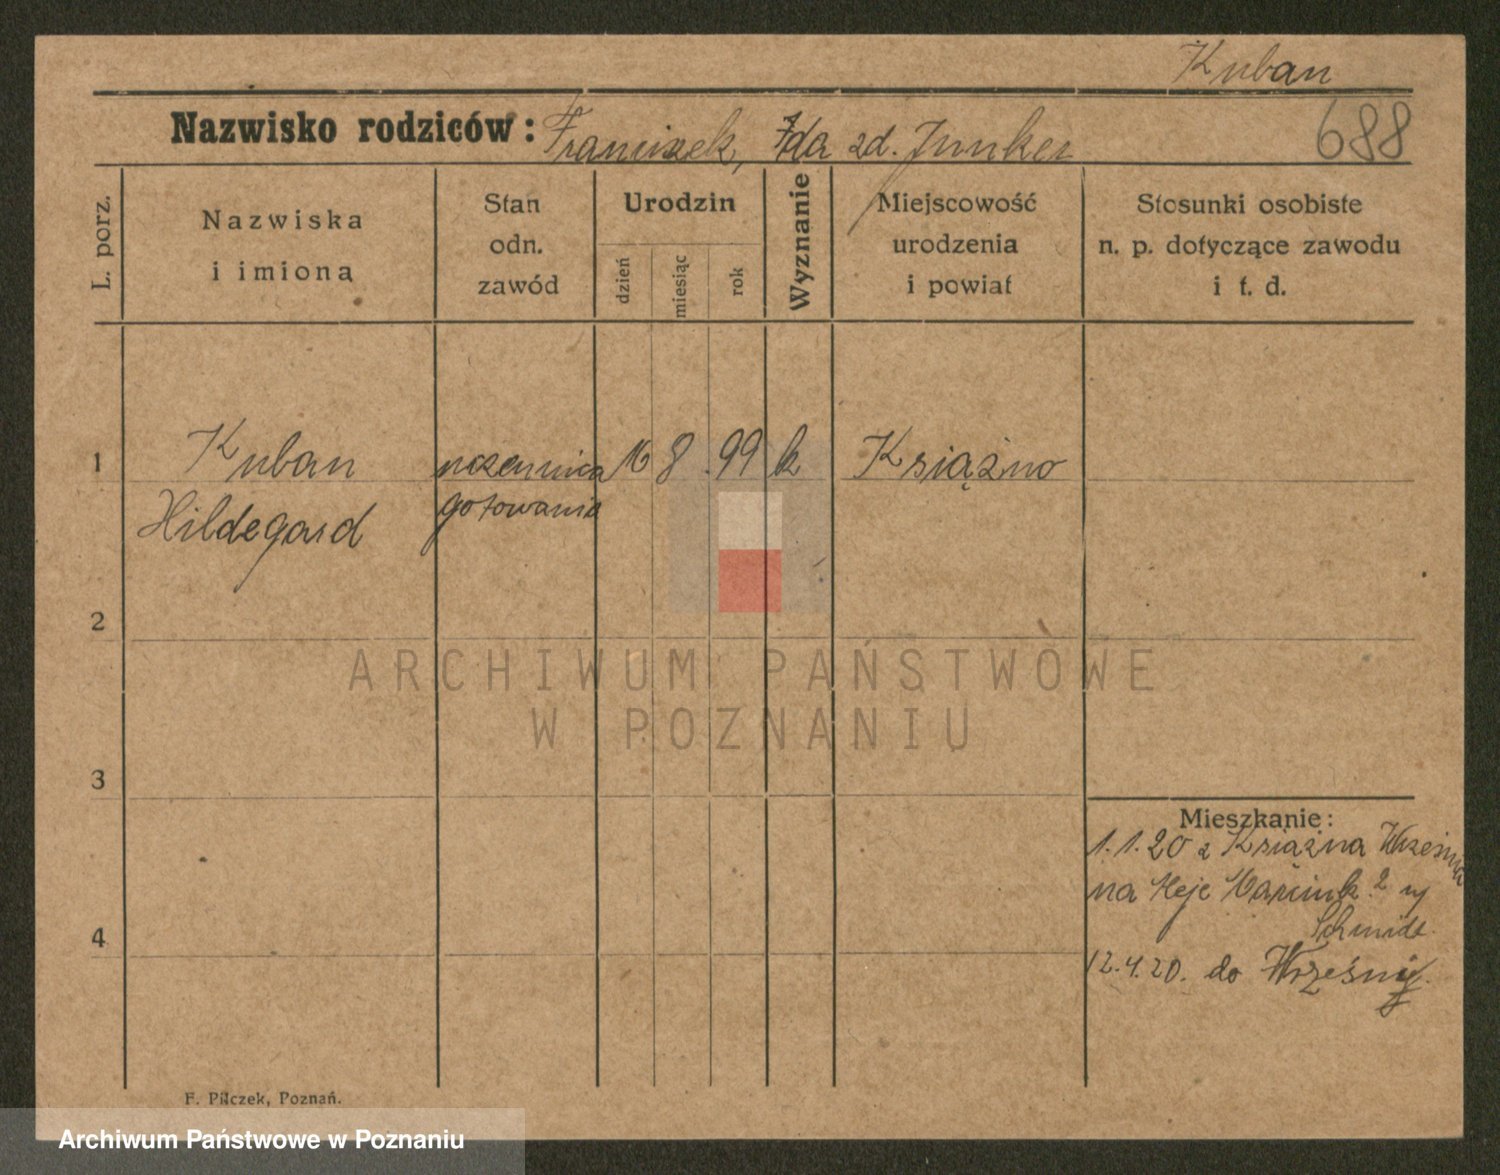 Kuban
688
Nazwisko rodziców: Franciszek, Ida zd. Junker
L. porz.
Nazwiska
i imiona
Stan
odn.
zawód
Urodzin
dzień
miesiąc
rok
Wyznanie
Miejscowość
urodzenia
i powiat
Stosunki osobiste
n. p. dotyczące zawodu
i t. d.
1
Kuban
Hildegard
uczennica
gotowania
16 8. 99 k Książno
2
ARCHIWUM PAŃSTWOWE
W POZNANIU
3
4
Mieszkanie:
1.1.20 z Książna Września
na Marcink. 2
Schmidt.
12.4.20. do Wrześni
F. Pilczek, Poznań.
Archiwum Państwowe w Poznaniu